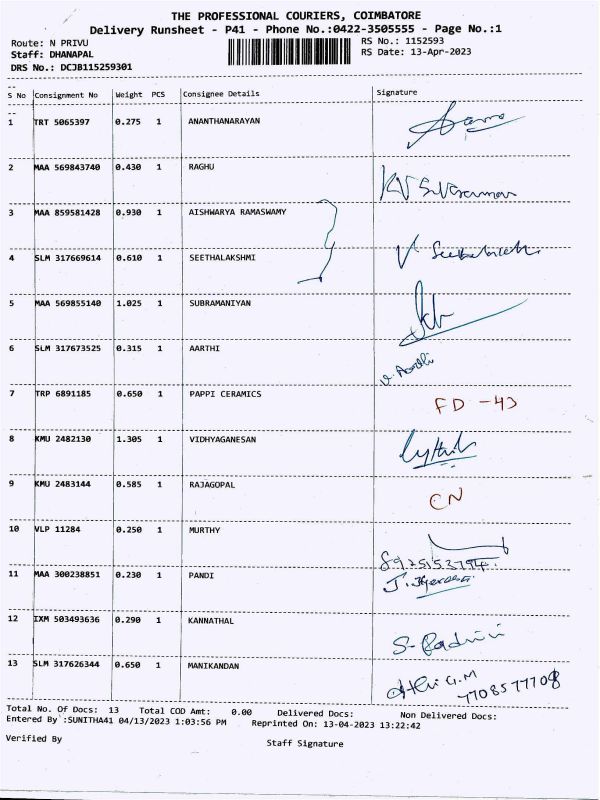 THE PROFESSIONAL COURIERS, COIMBATORE
Delivery Runsheet - P41 - Phone No.:0422-3505555 - Page No.:1
Route: N PRIVU RS No.: 1152593
Staff: DHANAPAL RS Date: 13-Apr-2023
DRS No.: DCJB115259301
S No Consignment No Weight PCS Consignee Details Signature
1 TRT 5065397 0.275 1 ANANTHANARAYAN
2 MAA 569843740 0.430 1 RAGHU
3 MAA 859581428 0.930 1 AISHWARYA RAMASWAMY
4 SLM 317669614 0.610 1 SEETHALAKSHMI
5 MAA 569855140 1.025 1 SUBRAMANIYAN
6 SLM 317673525 0.315 1 AARTHI
7 TRP 6891185 0.650 1 PAPPI CERAMICS FD -43
8 KMU 2482130 1.305 1 VIDHYAGANESAN
9 KMU 2483144 0.585 1 RAJAGOPAL CN
10 VLP 11284 0.250 1 MURTHY
11 MAA 300238851 0.230 1 PANDI
12 IXM 503493636 0.290 1 KANNATHAL
13 SLM 317626344 0.650 1 MANIKANDAN G.M
7708577708
Total No. Of Docs: 13 Total COD Amt: 0.00 Delivered Docs: Non Delivered Docs:
Entered By :SUNITHA41 04/13/2023 1:03:56 PM Reprinted On: 13-04-2023 13:22:42
Verified By Staff Signature